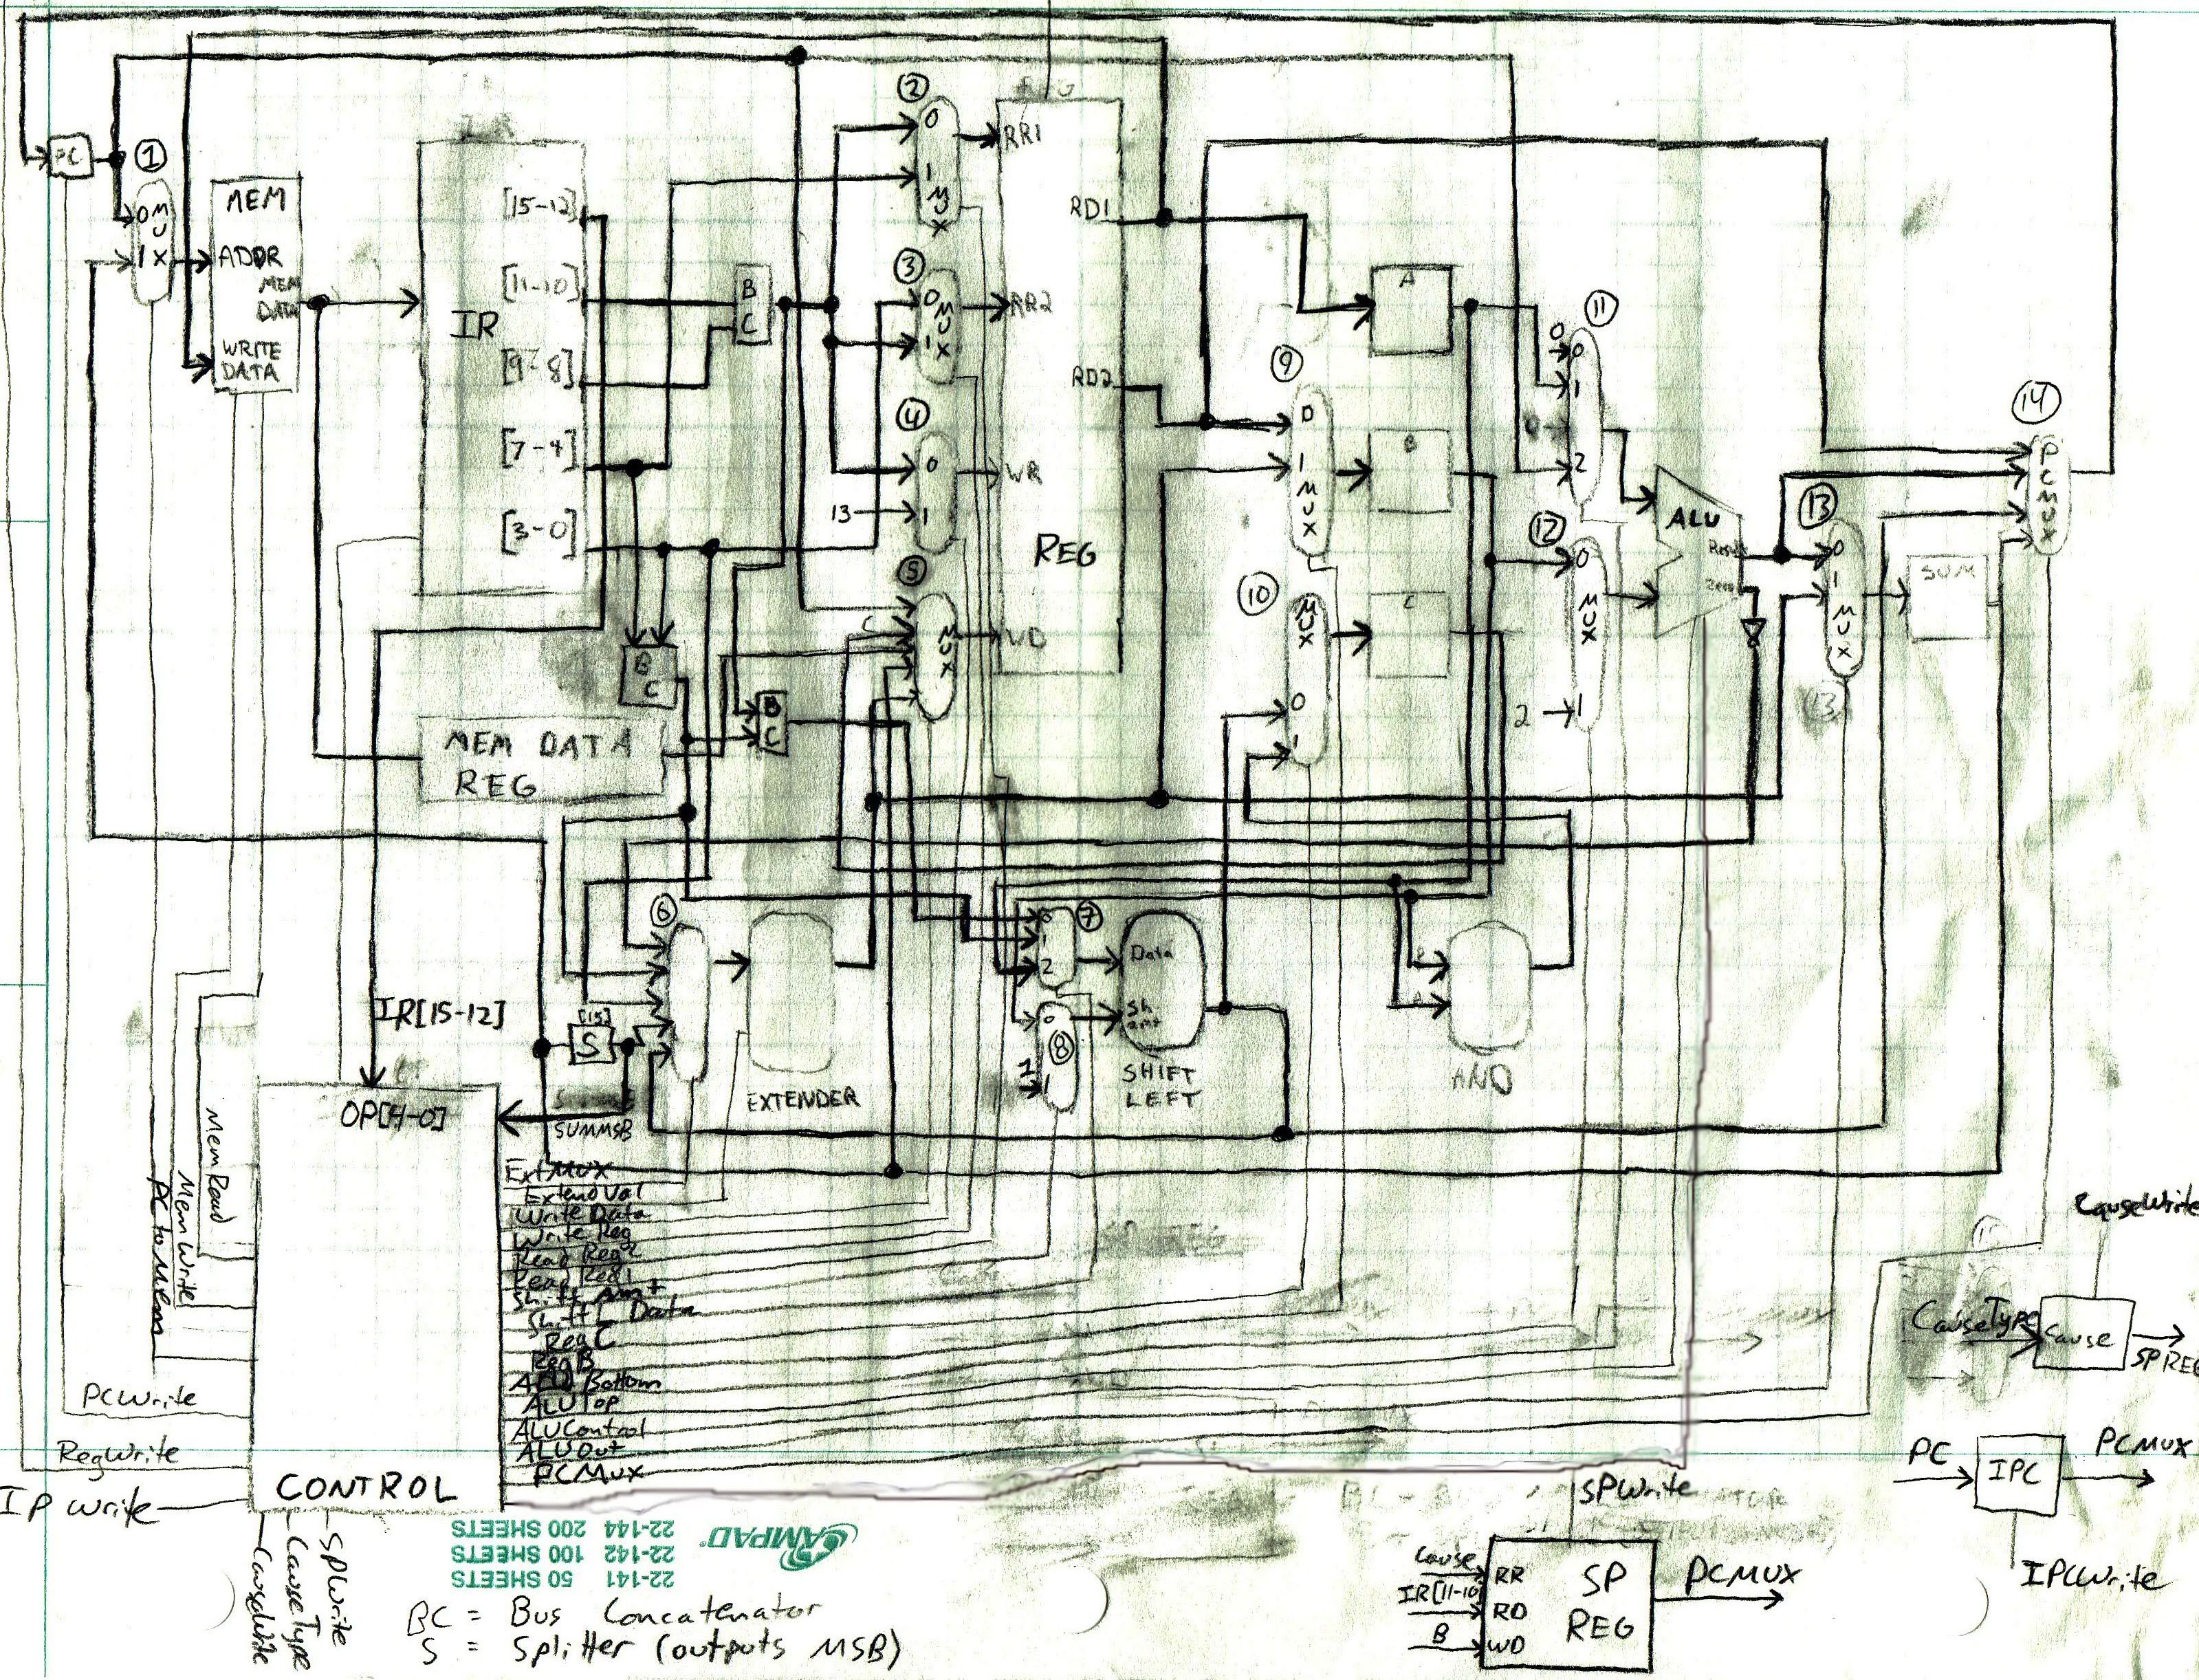 PC
1
0
MUX
1
MEM
ADDR
MEM
DATA
WRITE
DATA
IR
[15-12]
[11-10]
[9-8]
[7-4]
[3-0]
BC
BC
BC
MEM DATA
REG
2
0
1
MUX
3
0
1
MUX
4
0
13
1
5
MUX
RR1
RR2
WR
WD
RD1
RD2
REG
9
0
1
MUX
10
MUX
0
1
A
B
C
11
0
0
1
2
12
0
MUX
2
1
ALU
Result
Zero
13
0
1
MUX
SUM
14
PCMUX
(13)
6
7
0
1
2
Data
Sh
amt
0
8
1
1
SHIFT
LEFT
EXTENDER
AND
[15]
S
IR[15-12]
OP[4-0]
SUMMSB
ExtMUX
ExtendVal
Write Data
Write Reg
Read Reg2
Read Reg1
Shift Amt
Shift L Data
Reg C
Reg B
ALU Bottom
ALU Top
ALUControl
ALUOut
PCMux
MemRead
MemWrite
PCtoMem
PCWrite
RegWrite
IP write
CONTROL
SPWrite
CauseType
CauseWrite
CauseWrite
CauseType
Cause
SPREG
PC
IPC
PCMUX
IPCWrite
SPWrite
Cause
RR
IR[11-10]
RD
B
WD
SP
REG
PCMUX
AMPAD
22-141 50 SHEETS
22-142 100 SHEETS
22-144 200 SHEETS
BC = Bus Concatenator
S = Splitter (outputs MSB)